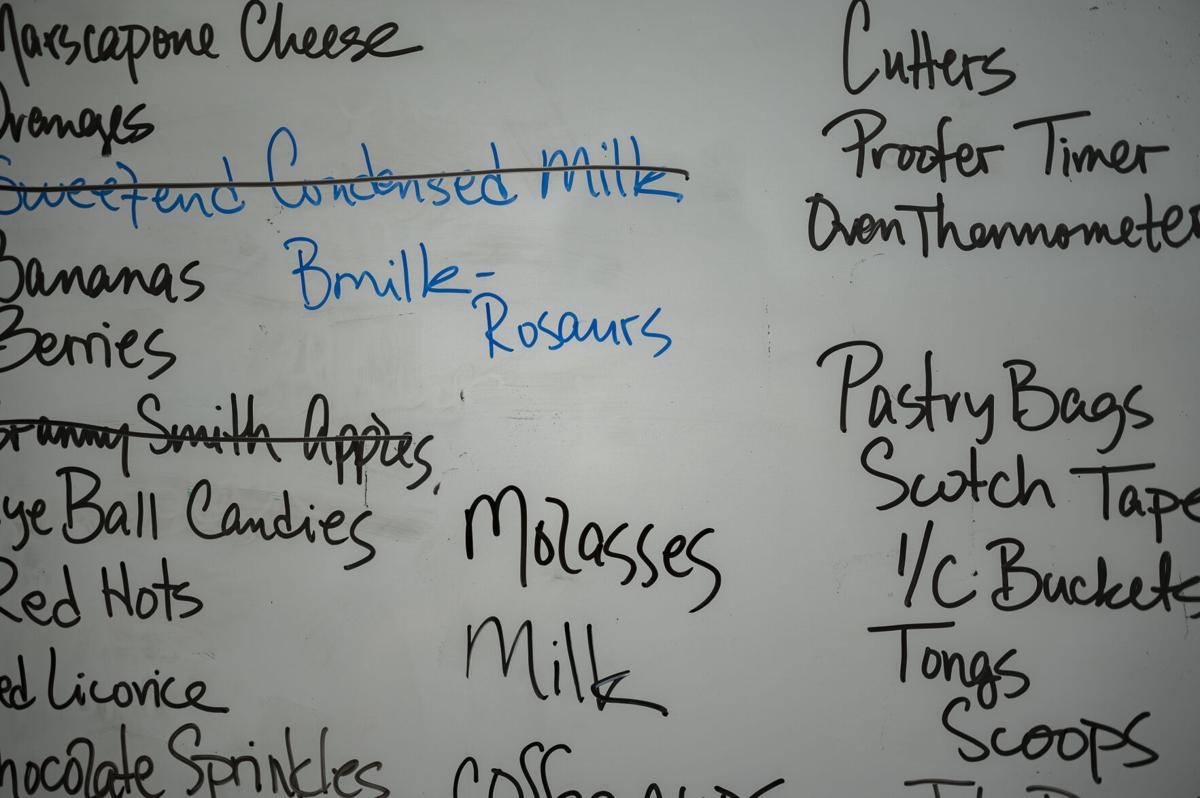 Marscapone Cheese
Oranges
Sweetend Condensed Milk
Bananas
Berries
Granny Smith Apples
ye Ball Candies
Red Hots
ed Licorice
hocolate Sprinkles
Bmilk-
Rosaurs
Molasses
Milk
Coffee
Cutters
Proofer Timer
Oven Thermometer
Pastry Bags
Scotch Tape
I/C Buckets
Tongs
Scoops